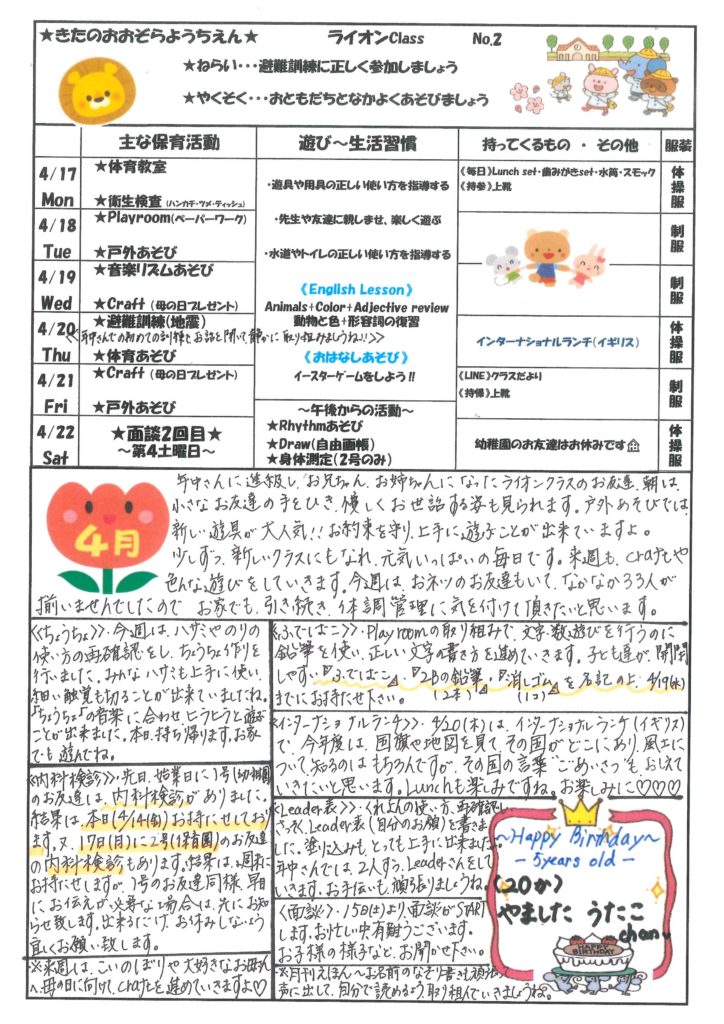 ★きたのおおぞらようちえん★ ライオンClass No.2
★ねらい・・・避難訓練に正しく参加しましょう
★やくそく・・・おともだちとなかよくあそびましょう
主な保育活動 遊び～生活習慣 持ってくるもの ・ その他 服装
4/17 Mon
★体育教室
★衛生検査(ハンカチ・ツメ・ティッシュ)
4/18 Tue
★Playroom(ペーパーワーク)
★戸外あそび
4/19 Wed
★音楽リズムあそび
★Craft (母の日プレゼント)
4/20 Thu
★避難訓練(地震)
<<年中さんでの初めての訓練です。お話を聞いて静かに取り組みましょうね!!>>
★体育あそび
4/21 Fri
★Craft (母の日プレゼント)
★戸外あそび
4/22 Sat
★面談2回目★
～第4土曜日～
・遊具や用具の正しい使い方を指導する
・先生や友達に親しませ、楽しく遊ぶ
・水道やトイレの正しい使い方を指導する
《English Lesson》
Animals+Color+Adjective review
動物と色+形容詞の復習
《おはなしあそび》
イースターゲームをしよう!!
～午後からの活動～
★Rhythmあそび
★Draw(自由画帳)
★身体測定(2号のみ)
《毎日》Lunch set・歯みがきset・水筒・スモック
《持参》上靴
インターナショナルランチ(イギリス)
《LINE》クラスだより
《持帰》上靴
幼稚園のお友達はお休みです
体操服
制服
制服
体操服
制服
体操服
4月
年中さんに進級し、お兄ちゃん、お姉ちゃんになったライオンクラスのお友達。朝は、
小さなお友達の手をひき、優しくお世話する姿も見られます。戸外あそびでは、
新しい遊具が大人気!!お約束を守り、上手に遊ぶことが出来ていますよ。
少しずつ、新しいクラスにもなれ、元気いっぱいの毎日です。来週も、Craftや
色んな遊びをしていきます。今週は、おネツのお友達もいて、なかなか33人が
揃いませんでしたので お家でも、引き続き、体調管理に気を付けて頂きたいと思います。
<<ちょうちょ>>・今週は、ハサミやのりの
使い方の再確認をし、ちょうちょ作りを
行いました。みんな、ハサミも上手に使い、
細い触覚も切ることが出来ていましたね。
『ちょうちょ』の音楽に合わせ、ヒラヒラと遊ぶ
ことが出来ました。本日、持ち帰ります。お家
でも遊んでね。
<<内科検診>>・先日、始業日に1号(幼稚園)
のお友達は、内科検診がありました。
結果は、本日(4/14(金))お持たせしており
ます。又、17日(月)に2号(保育園)のお友達
の内科検診もあります。結果は、週末に
お持たせしますが、1号のお友達同様、早目
にお伝えが必要な場合は、先にお知
らせ致します。出来るだけ、お休みしないよう
宜しくお願い致します。
※来週は、こいのぼりや大好きなお母さん
へ、母の日に向けて、Craftを進めていきますよ♡
<<ふでばこ>>・Playroomの取り組みで、文字、数遊びを行うのに
鉛筆を使い、正しい文字の書き方を進めていきます。子ども達が、開閉
しやすい『ふでばこ』、『2Bの鉛筆』(2本)、『消しゴム』(1コ)を名記の上、4/19(水)
までにお持たせ下さい。
<<インターナショナルランチ>>・4/20(木)は、インターナショナルランチ(イギリス)
で、今年度は、国旗や地図を見て、その国がどこにあり、風土に
ついて知るのはもちろんですが、その国の言葉“ごあいさつ”も、お伝えして
いきたいと思います。Lunchも楽しみですね。お楽しみに♡♡♡
<<Leader表>>・くれよんの使い方、再確認し
さっそく、Leader表(自分のお顔)を書きま
した。塗り込みもとっても上手に出来ましたよ。
年中さんでは、2人ずつ、Leaderさんをして
いきます。お手伝いも、頑張りましょうね。
<<面談>>・15日(土)より、面談がSTART
します。お忙しい中有難うございます。
お子様の様子など、お聞かせ下さい。
※月刊えほん～お名前のなぞり書きも頑張って
声に出して、自分で読めるよう、取り組んでいきましょうね。
～Happy Birthday～
- 5years old -
(20か)
やました うたこ
chan
HAPPY BIRTHDAY